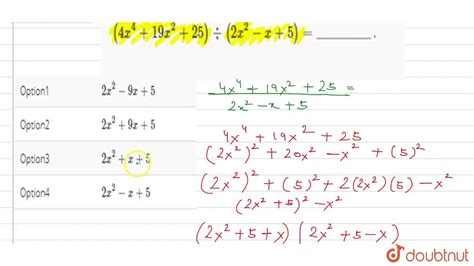 (4x⁴ + 19x² + 25) ÷ (2x² − x + 5) = ________ .
Option1 2x² − 9x + 5
Option2 2x² + 9x + 5
Option3 2x² + x + 5
Option4 2x² − x + 5
4x⁴ + 19x² + 25 =
2x² − x + 5
4x⁴ + 19x² + 25
(2x²)² + 20x² − x² + (5)²
(2x²)² + (5)² + 2(2x²)(5) − x²
(2x² + 5)² − x²
(2x² + 5 + x) (2x² + 5 − x)
doubtnut